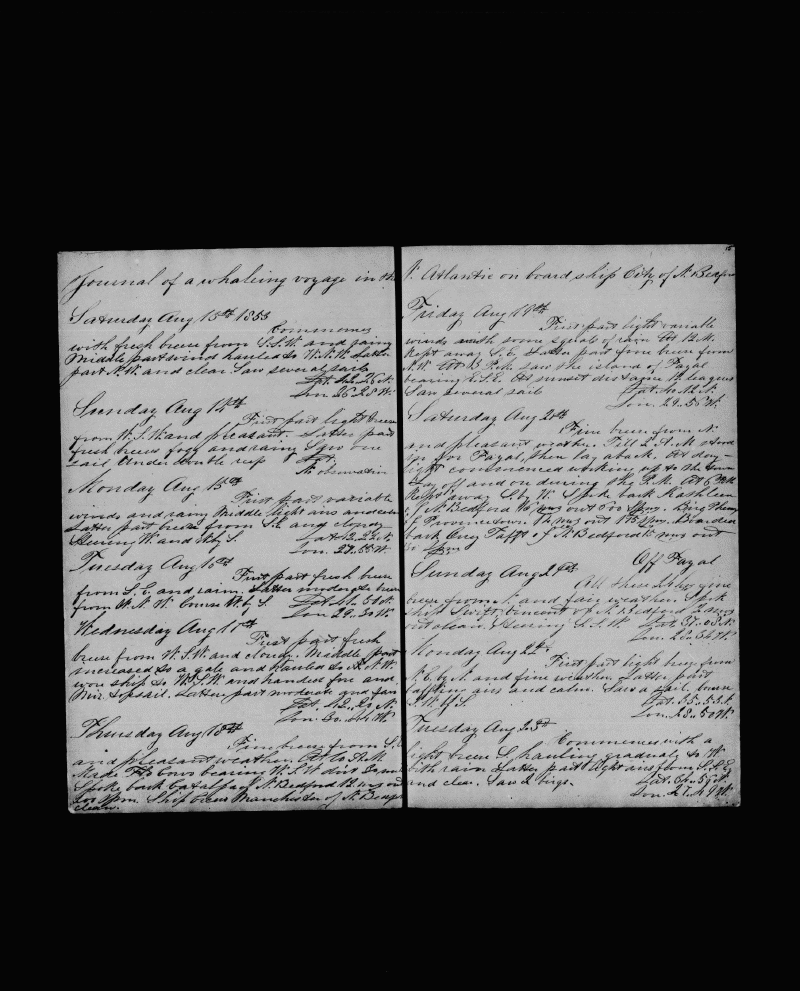 Journal of a whaleing voyage in the
Saturday Aug 13th 1853
Commences
with fresh breeze from S.S.W. and rainy
Middle part wind hauled to W.N.W. Latter
part N.W. and clear. Saw several sails
Lat. 42..26 N.
Lon. 26..28 W.
Sunday Aug 14th
First part light breeze
from W.S.W. and pleasant. Latter part
fresh breeze foggy and rainy. Saw one
sail under double reef Lat.
No observation
Monday Aug 15th
First part variable
winds and rainy Middle light airs and
Latter part breeze from S.E. and cloudy
Steering W. and W by S.
Lon. 27..55 W.
Tuesday Aug 16th
First part fresh breeze
from S.E. and rain. Latter moderate breeze
from W.N.W. Course W. by S.
Lon 29..30 W.
Wednesday Aug 17th
First part fresh
breeze from W.S.W. and cloudy. Middle part
increased to a gale and hauled to
wore ship to W.S.W. and handed fore and
Miz. topsail. Latter part moderate and fair
Lat. 42..
Lon. 30..
Thursday Aug 18th
Fine breeze from S.
and pleasant weather. At 10 A.M.
Made bearing W.S.W. dist
Spoke bark of N. Bedford out
Ship Manchester of N. Bedford
clean.
15
N. Atlantic on board ship City of N. Bedford
Friday Aug 19th
First part light variable
winds with some squalls of rain At 12 M.
kept away S.E. Latter part fine breeze from
N.W. At P.M. saw the island of Fayal
bearing E.S.E. At sunset distance leagues
Saw several sails
Lon. 29..55 W.
Saturday Aug 20th
Fine breeze from N.
and pleasant weather. Till 2 A.M. stood
up for Fayal, then lay aback. At day-
light commenced working up to the town
Lay off and on during the P.M. At 6 P.M.
kept away S. by W. Spoke bark Kathleen
of N. Bedford out Spm. Brig
of Provincetown. out Spm. Boarded
bark Tafft of N. Bedford out
Spm
Off Fayal
Sunday Aug 21st
All these 24 hours fine
breeze from N. and fair weather. Spoke
ship Swift, Vincent of N. Bedford 2 mos
out clean. Steering S.S.W. Lat. 37..08 N.
Lon. 28..36 W.
Monday Aug 22d
First part light breeze from
N.E. by N. and fine weather. Latter part
baffling airs and calm. Saw a sail.
S.W. by S. Lat. 35..53 N.
Lon. 28..50 W.
Tuesday Aug 23d
Commences with a
light breeze S. hauling gradualy to W.
with rain. Latter part light airs from S.S.E.
and clear. Saw 2 brigs.
Lon. 27..49 W.